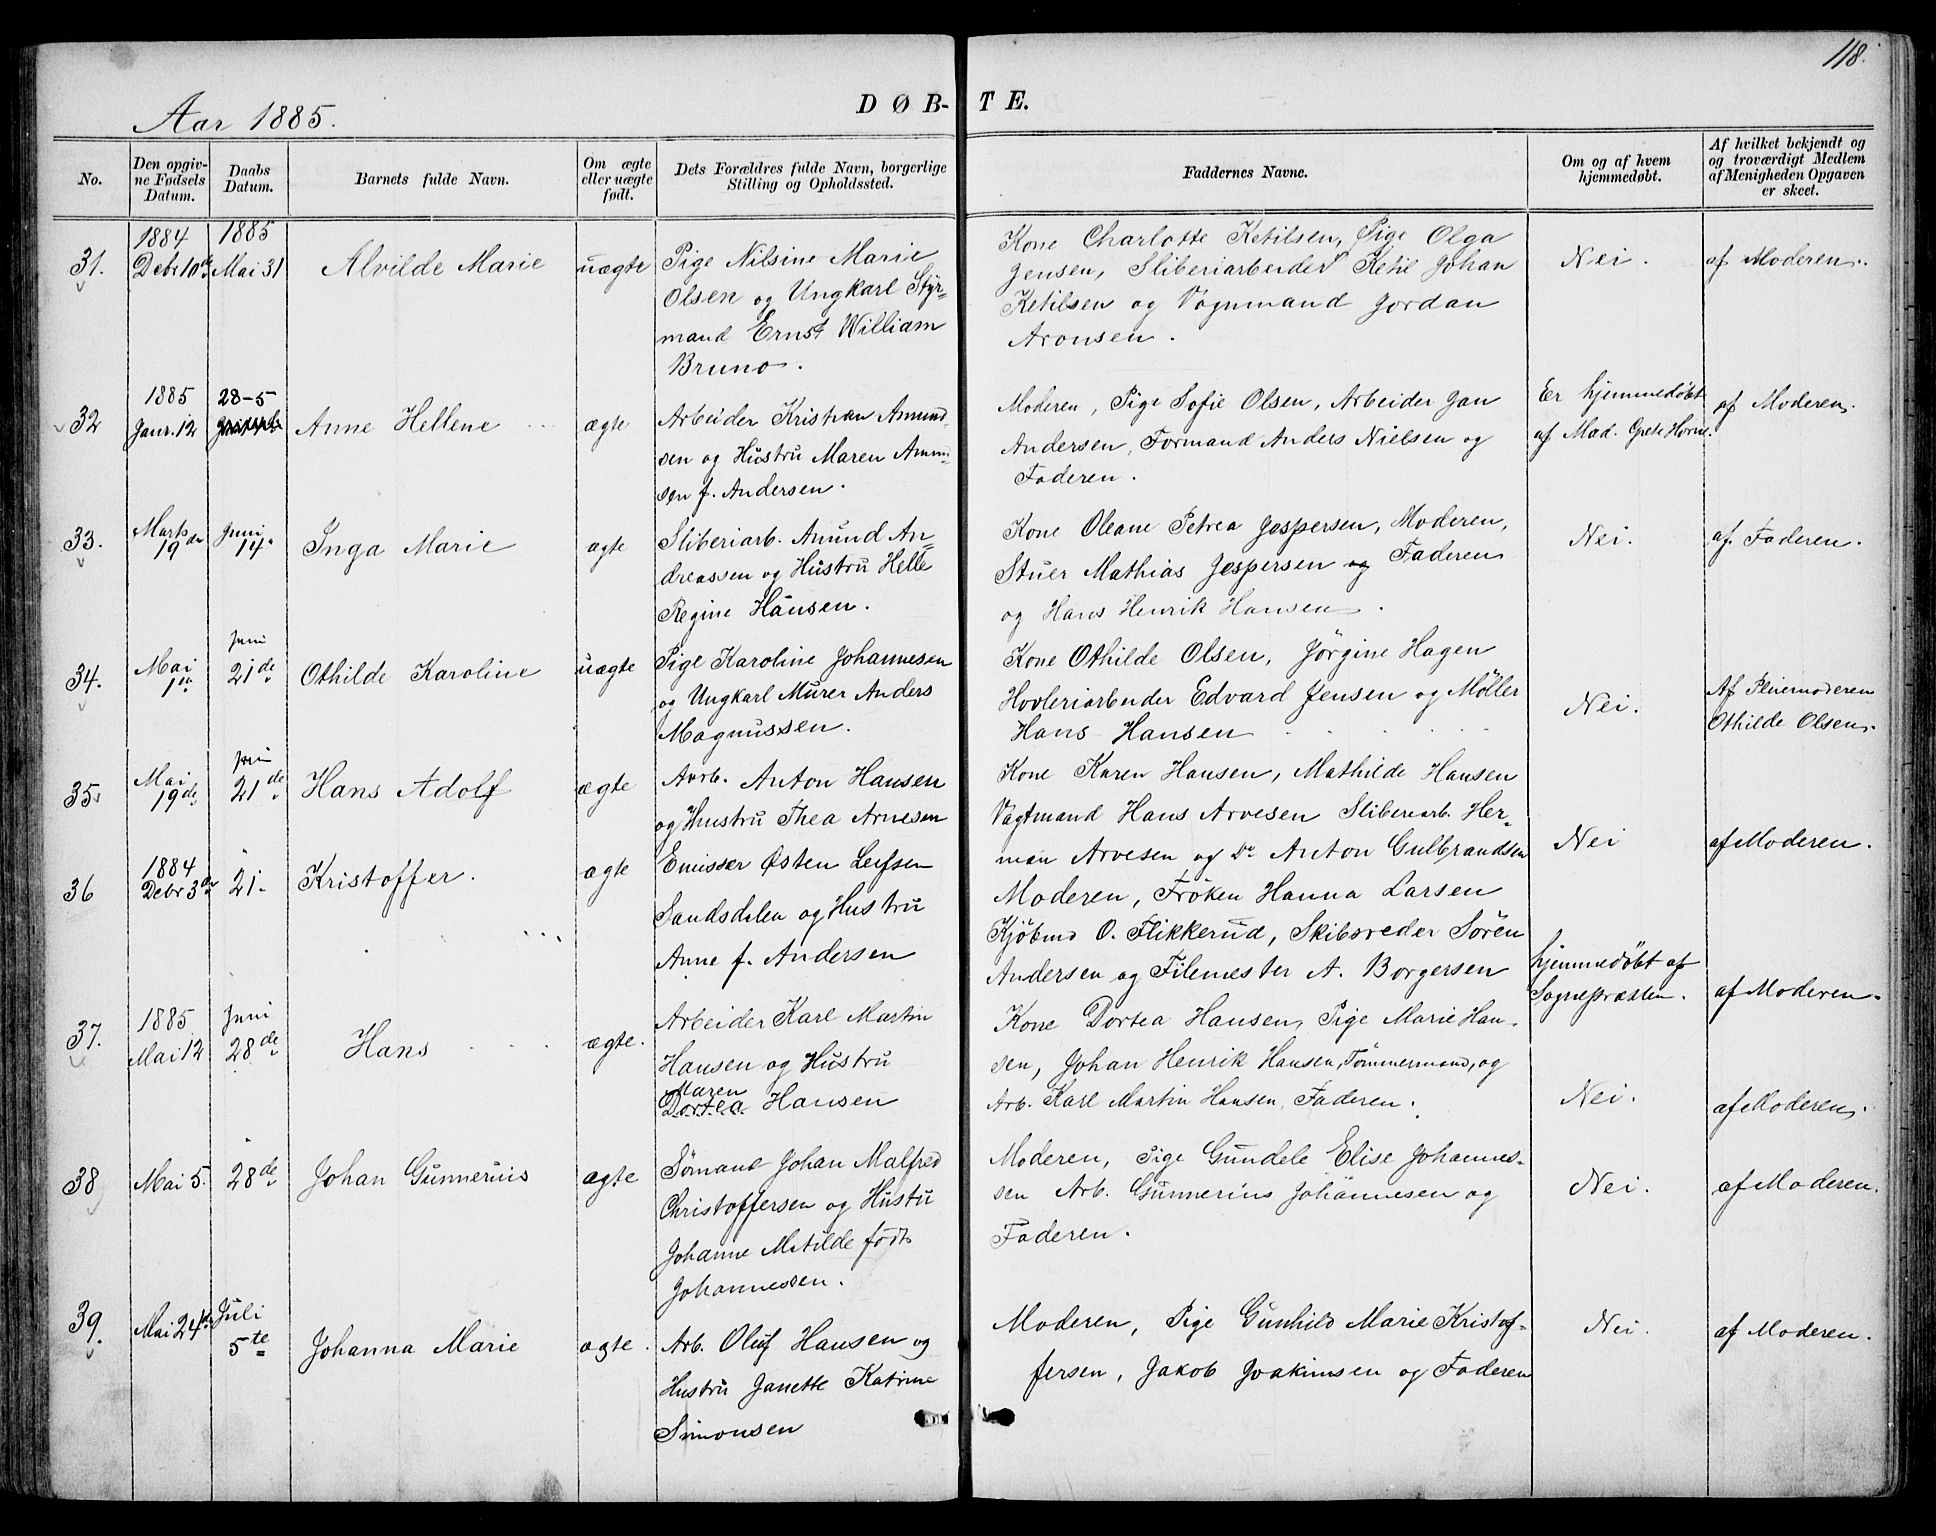 118.
Aar 1885.
DØB-TE.
No.
Den opgiv-
ne Fødsels
Datum.
Daabs
Datum.
Barnets fulde Navn.
Om ægte
eller uægte
født.
Dets Forældres fulde Navn, borgerlige
Stilling og Opholdssted.
Faddernes Navne.
Om og af hvem
hjemmedøbt.
Af hvilket bekjendt og
og troværdigt Medlem
af Menigheden Opgaven
er skeet.
31.
1884
Debr 10de
1885
Mai 31
Alvilde Marie
uægte
Pige Nilsine Marie
Olsen og Ungkarl Styr-
mand Ernst William
Bruno.
Kone Charlotte Ketilsen, Pige Olga
Jensen, Sliberiarbeider Ketil Johan
Ketilsen og Vognmand Jordan
Aronsen.
Nei.
af Moderen.
32
1885
Janr. 12
28-5
Anne Hellene
ægte
Arbeider Kristian Amund
sen og Hustru Maren Amun-
sen f. Andersen.
Moderen, Pige Sofie Olsen, Arbeider Jan
Andersen, Formand Anders Nielsen og
Faderen.
Er hjemmedøbt
af Mad. Grete Horne.
af Moderen.
33.
Marts
19de
Juni
14.
Inga Marie
ægte
Sliberiarb. Amund An-
dreassen og Hustru Helle
Regine Hansen.
Kone Oleane Petrea Jespersen, Moderen,
Stuer Mathias Jespersen og Faderen
og Hans Henrik Hansen.
Nei.
af Faderen.
34.
Mai
1ste
Juni
21de
Othilde Karoline
uægte
Pige Karoline Johannesen
og Ungkarl Murer Anders
Magnussen.
Kone Othilde Olsen, Jörgine Hagen
Hovleriarbeider Edvard Jensen og Møller
Hans Hansen
Nei.
Af Pleiemoderen
Othilde Olsen.
35
Mai
19de
Juni
21de
Hans Adolf
ægte
Aarb. Anton Hansen
og Hustru Thea Arvesen
Kone Karen Hansen, Mathilde Hansen
Vagtmand Hans Arvesen Sliberiarb. Her-
man Arvesen og Do Anton Gulbrandsen
Nei
af Moderen.
36
1884
Debr 3de
21.
Kristoffer.
ægte
Emissær Østen Leifsen
Sandsdalen og Hustru
Anne f. Andersen
Moderen, Frøken Hanna Larsen
Kjøbmd O. Flikkerud, Skibsreder Sören
Andersen og Filemester A. Borgersen
hjemmedøbt af
Sognepræsten.
af Moderen.
37.
1885
Mai 12
Juni
28de
Hans
ægte.
Arbeider Karl Martin
Hansen og Hustru
Maren
Dortea Hansen
Kone Dortea Hansen, Pige Marie Han-
sen, Johan Henrik Hansen, Tömmermand, og
Arb. Karl Martin Hansen, Faderen.
Nei.
af Moderen.
38
Mai 5.
28de
Johan Gunnerius
ægte
Sømand Johan Malfred
Christoffersen og Hustu
Johanne Matilde født
Johannessen.
Moderen, Pige Gundele Elise Johannes-
sen Arb. Gunnerius Johannesen og
Faderen.
Nei.
af Moderen.
39.
Mai 24de
Juli
5te
Johanna Marie
ægte.
Arb. Oluf Hansen og
Hustru Janette Katrine
Simonsen
Moderen, Pige Gunhild Marie Kristof-
fersen, Jakob Joakimsen og Faderen
Nei.
af Moderen.